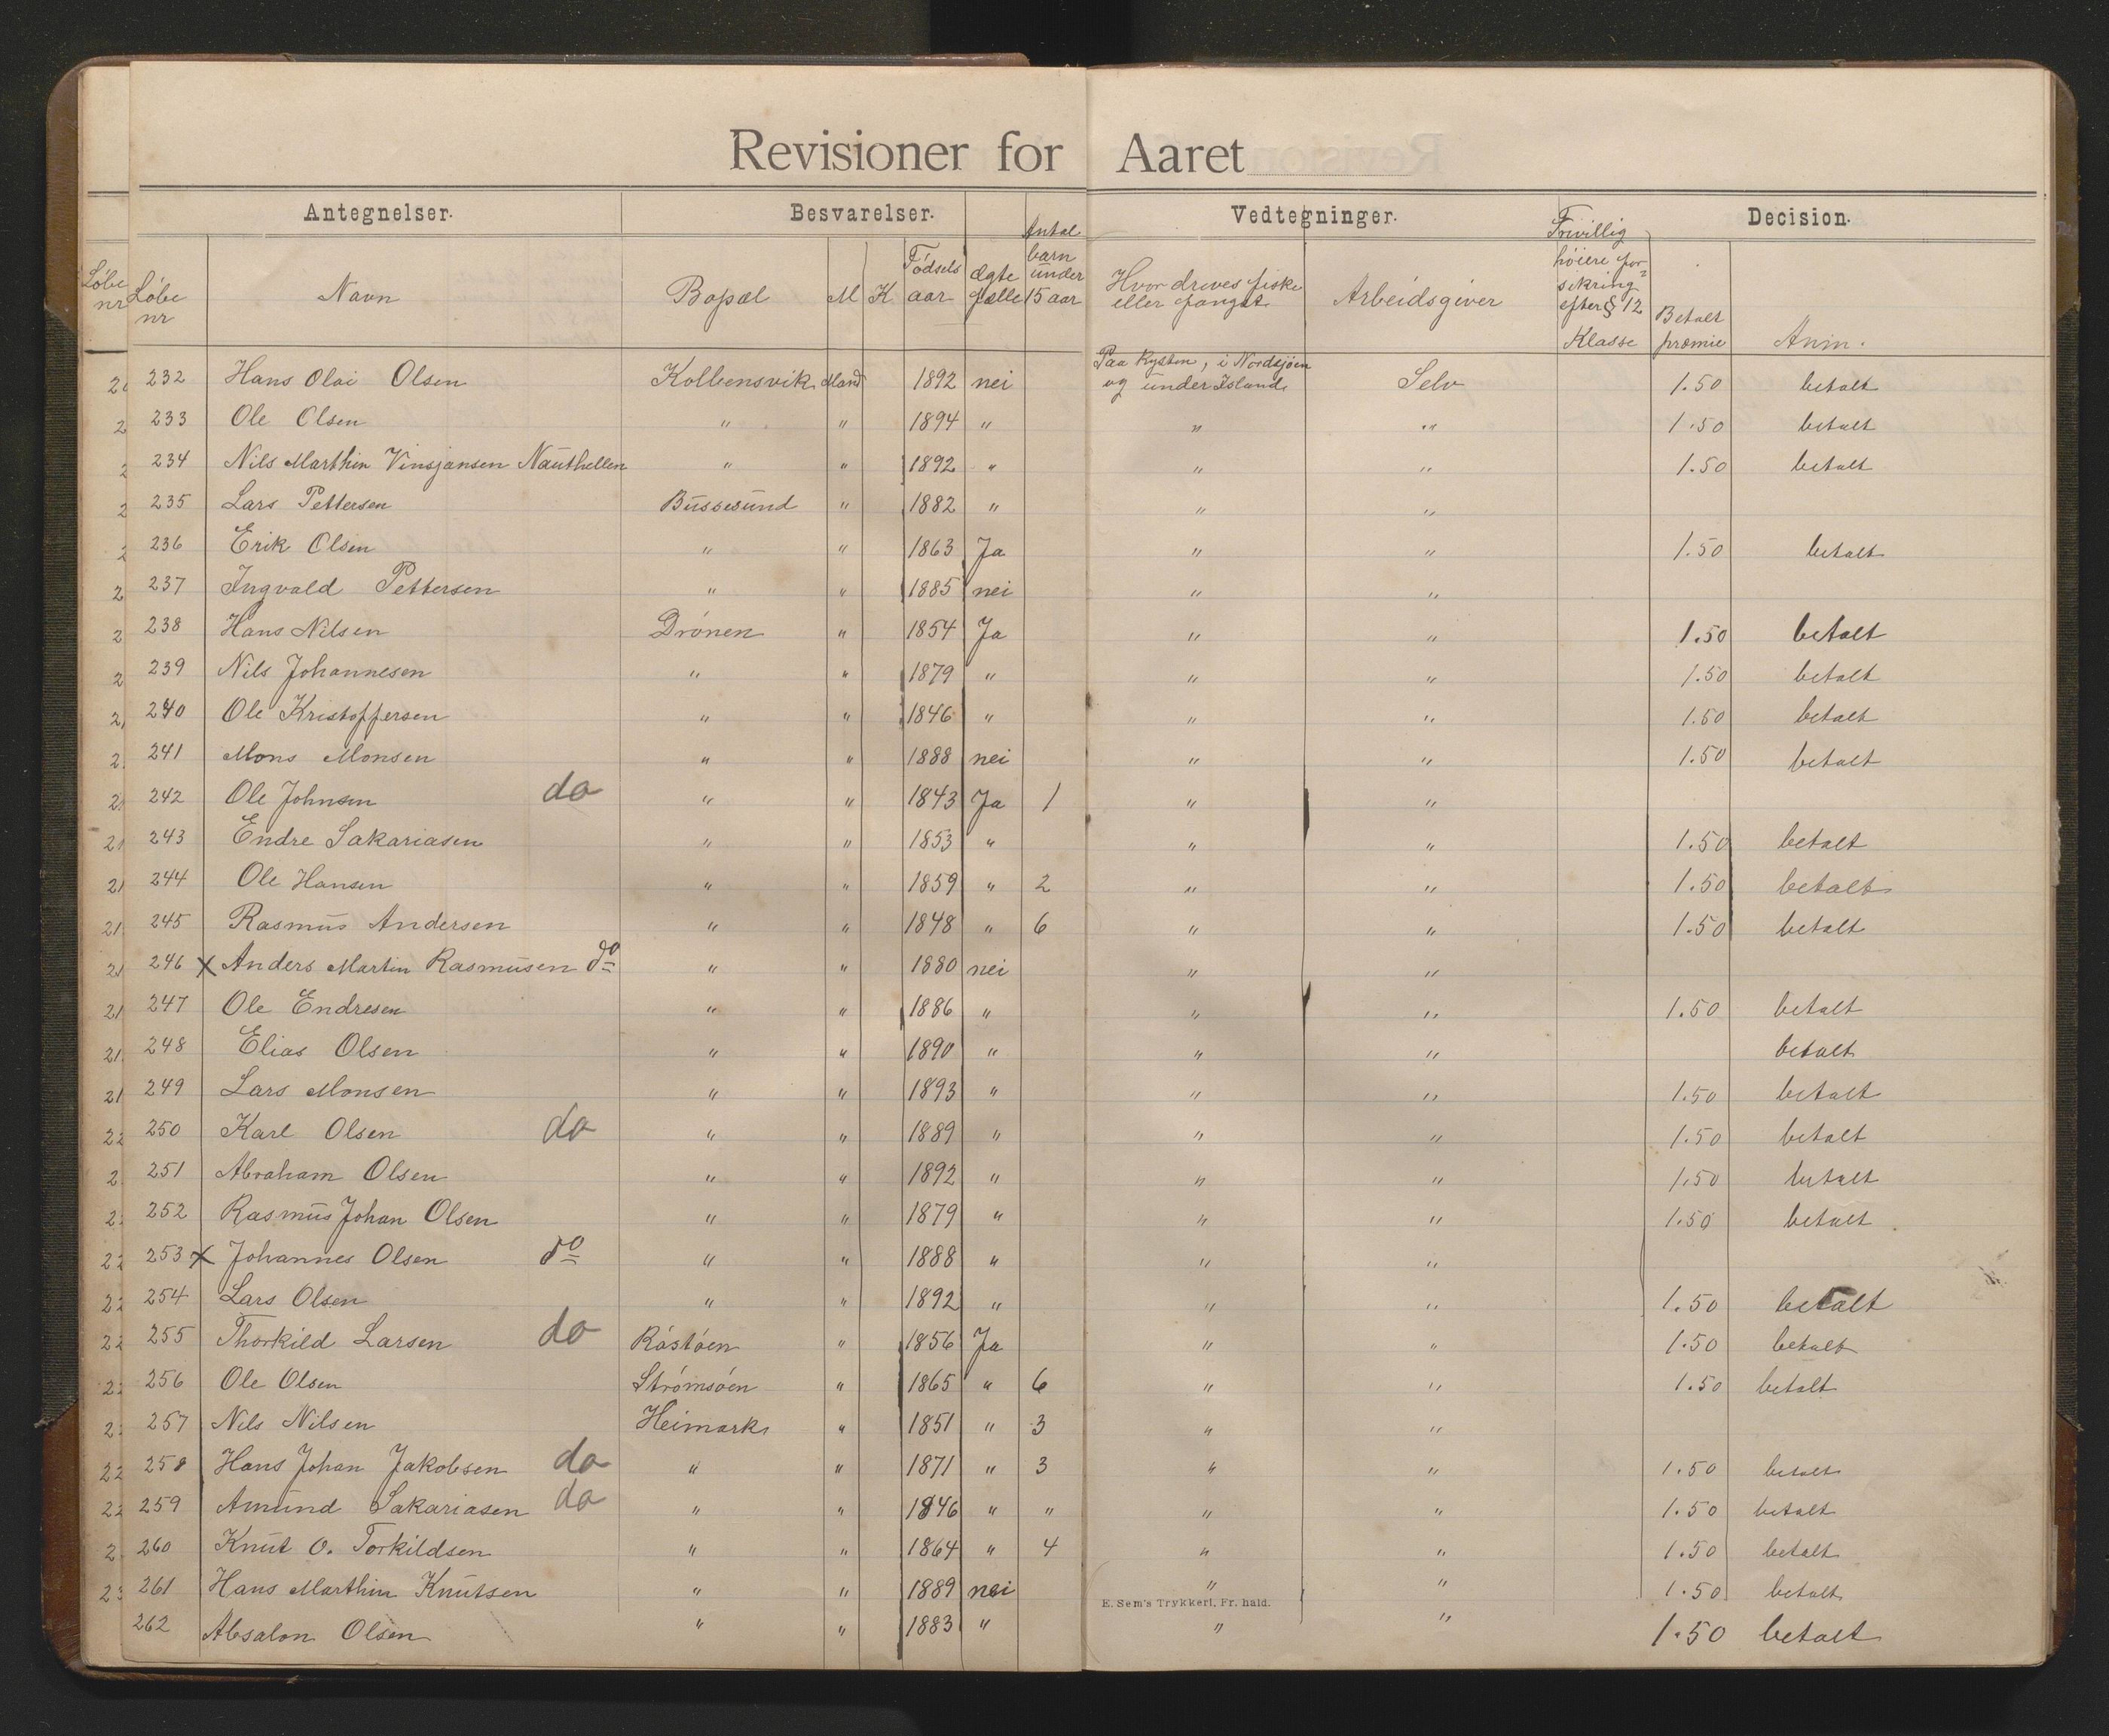 Revisioner for Aaret
Antegnelser. Besvarelser. Vedtegninger. Decision.
Løbe nr Løbe nr Navn Bopæl M K Fødsels aar ægte fælle Antal barn under 15 aar Hvor dreves fiske eller fangst Arbeidsgiver Frivillig høiere forsikring efter § 12 Klasse Betalt præmie Anm.
232 Hans Olai Olsen Kolbensvik Mand 1892 nei Paa Kysten, i Nordsjøen og under Island Selv 1.50 betalt
233 Ole Olsen " " 1894 " " " 1.50 betalt
234 Nils Marthin Vinsjansen Nauthellen " " 1892 " " " 1.50 betalt
235 Lars Pettersen Bussesund " 1882 " " "
236 Erik Olsen " " 1863 Ja " " 1.50 betalt
237 Ingvald Pettersen " " 1885 nei " "
238 Hans Nilsen Drønen " 1854 Ja " " 1.50 betalt
239 Nils Johannesen " " 1879 " " " 1.50 betalt
240 Ole Kristoffersen " " 1846 " " " 1.50 betalt
241 Mons Monsen " " 1888 nei " " 1.50 betalt
242 Ole Johnsen do " " 1843 Ja 1 " "
243 Endre Sakariasen " " 1853 " " " 1.50 betalt
244 Ole Hansen " " 1859 " 2 " " 1.50 betalt
245 Rasmus Andersen " " 1848 " 6 " " 1.50 betalt
246 x Anders Martin Rasmusen do " " 1880 nei " "
247 Ole Endresen " " 1886 " " " 1.50 betalt
248 Elias Olsen " " 1890 " " " betalt
249 Lars Monsen " " 1893 " " " 1.50 betalt
250 Karl Olsen do " " 1889 " " " 1.50 betalt
251 Abraham Olsen " " 1892 " " " 1.50 betalt
252 Rasmus Johan Olsen " " 1879 " " " 1.50 betalt
253 x Johannes Olsen do " " 1888 " " "
254 Lars Olsen " " 1892 " " " 1.50 betalt
255 Thorkild Larsen do Råstøen " 1856 Ja " " 1.50 betalt
256 Ole Olsen Strømsøen " 1865 " 6 " " 1.50 betalt
257 Nils Nilsen Heimark " 1851 " 3 " "
258 Hans Johan Jakobsen do " " 1871 " 3 " " 1.50 betalt
259 Amund Sakariasen do " " 1846 " " " " 1.50 betalt
260 Knut O. Torkildsen " " 1864 " 4 " " 1.50 betalt
261 Hans Marthin Knutsen " " 1889 nei " " 1.50 betalt
E. Sem's Trykkeri, Fr. hald.
262 Absalon Olsen " " 1883 " " " 1.50 betalt